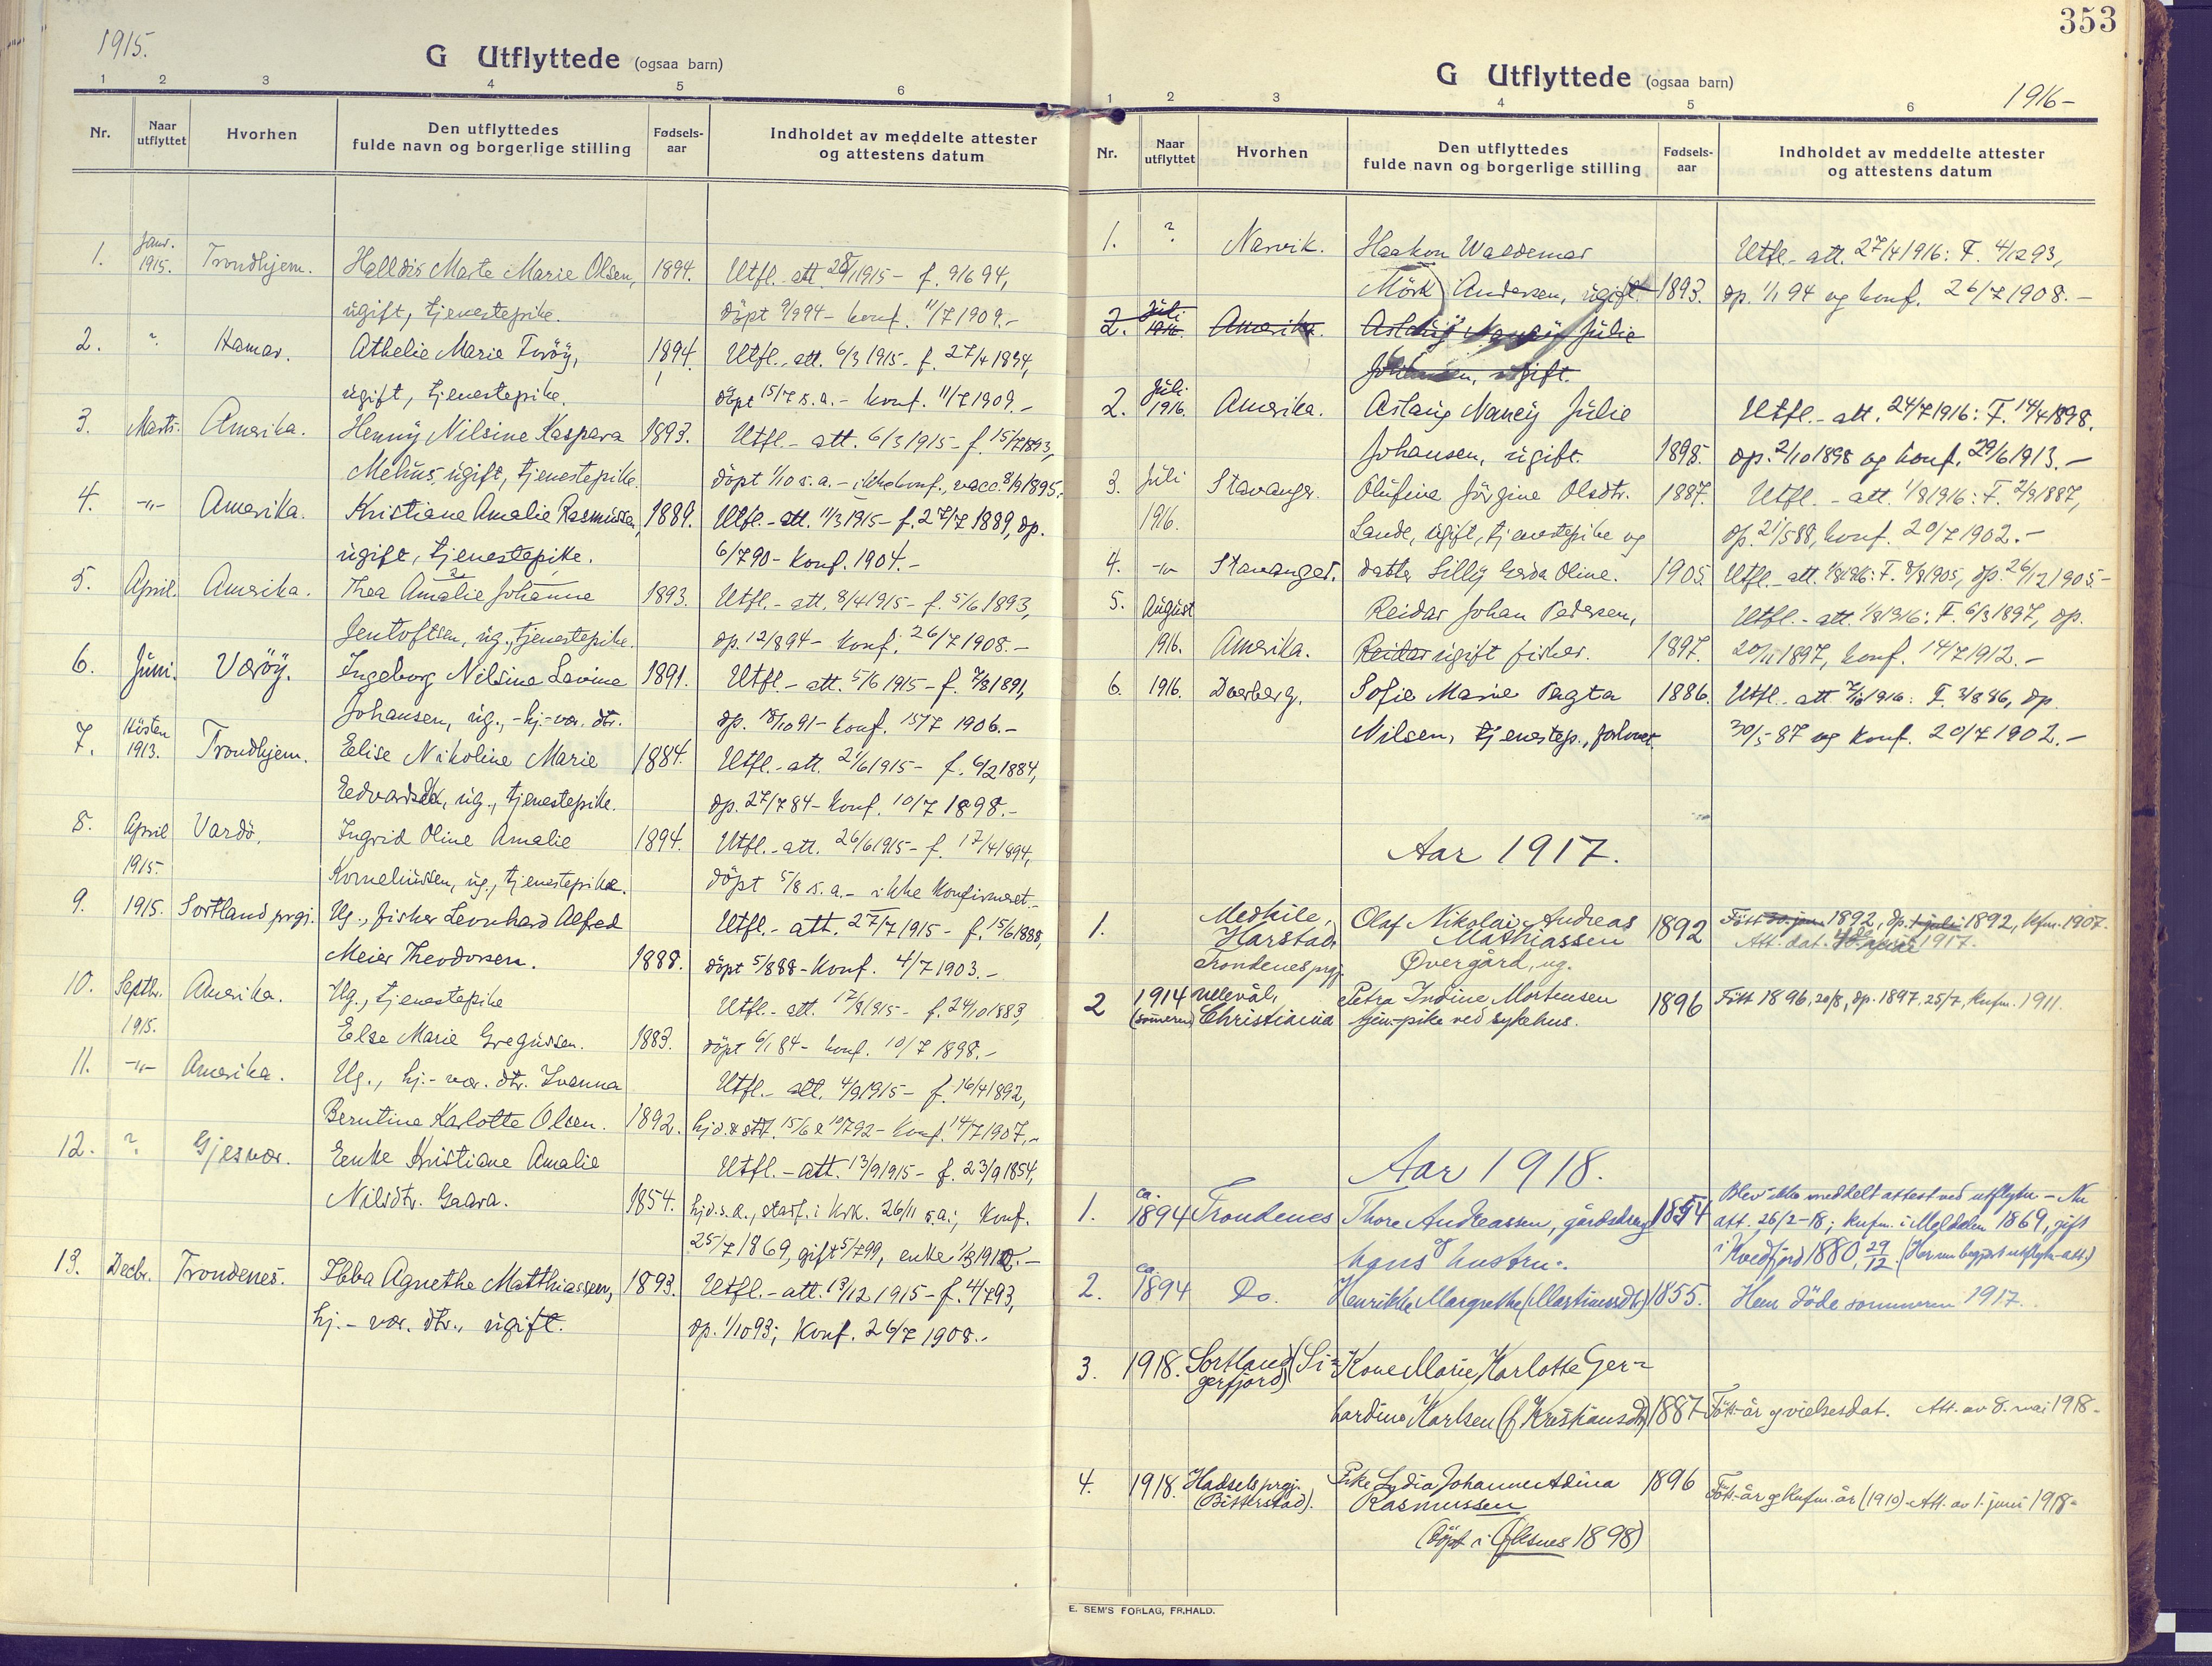 1915.
G Utflyttede (ogsaa barn)
1 2 3 4 5 6
Nr. Naar utflyttet Hvorhen Den utflyttedes fulde navn og borgerlige stilling Fødsels-aar Indholdet av meddelte attester og attestens datum
1. Janr. 1915. Trondhjem. Halldis Marta Marie Olsen, 1894. Utfl.-att. 28/1 1915 - f. 9/6 94,
ugift, tjenestepike. döpt 9/9 94 - konf. 11/7 1909.-
2. " Hamar. Athelie Marie Toröy, 1894. Utfl.-att. 6/3 1915 - f. 27/4 1894,
ugift, tjenestepike. döpt 15/7 s.a. - konf. 11/7 1909.-
3. Marts. Amerika. Henny Nilsine Kaspara 1893. Utfl.-att. 6/3 1915 - f. 15/7 1893,
Mehus, ugift, tjenestepike. döpt 1/10 s.a. - ikke konf., vacc. 8/9 1895.
4. -"- Amerika. Kristiane Amalie Rasmussen, 1889. Utfl.-att. 11/3 1915 - f. 27/7 1889, dp.
ugift, tjenestepike. 6/7 90 - konf. 1904.-
5. April. Amerika. Thea Amalie Johanne 1893. Utfl.-att. 8/4 1915 - f. 5/6 1893,
Jentoftsen, ug., tjenestepike. dp. 12/8 94 - konf. 26/7 1908.-
6. Juni. Værøy. Ingeborg Nilsine Lavine 1891. Utfl.-att. 5/6 1915 - f. 7/8 1891,
Johansen, ug., - hj.-vær. dtr. dp. 18/10 91 - konf. 15/7 1906.-
7. Hösten 1913. Trondhjem. Eelise Nikoline Marie 1884. Utfl.-att. 21/6 1915 - f. 6/2 1884,
Eedvardsen, ug., tjenestepike. dp. 27/7 84 - konf. 10/7 1898.-
8. April Vardö. Ingrid Oline Amalie 1894. Utfl.-att. 26/6 1915 - f. 17/4 1894,
1915. Korneliussen, ug., tjenestepike. döpt 5/8 s.a. - ikke konfirmeret.-
9. 1915. Sortland prgj. Ug., fisker Leonhard Alfred Utfl.-att. 27/7 1915 - f. 15/6 1888,
Meier Theodorsen. 1888. döpt 5/8 88 - Konf. 4/7 1903.-
10. Septbr. Amerika. Ug., tjenestepike Utfl.-att. 17/8 1915 - f. 24/10 1883,
1915. Else Marie Gregusen. 1883. döpt 6/1 84 - konf. 10/7 1898.-
11. -"- Amerika. Ug., hj.-vær. dtr. Ivanna Utfl.-att. 4/9 1915 - f. 16/4 1892,
Berntine Karlotte Olsen. 1892. hj.d. & stf. 15/6 & 10/7 92 - Konf. 14/7 1907.-
12. ? Gjesvær. Enke Kristiane Amalie Utfl.-att. 13/9 1915 - f. 23/9 1854,
Nilsdtr. Gaara. 1854. hj.d. s.a., stadf. i Kirk. 26/11 s.a.; Konf.
25/7 1869, gift 5/7 99, enke 1/3 1912.-
13. Decbr. Trondenes. Ebba Agnethe Matthiassen, 1893. Utfl.-att. 13/12 1915 - f. 4/7 93,
hj.-vær. dtr., ugift. dp. 1/10 93; Konf. 26/7 1908.-
353
G Utflyttede (ogsaa barn)
1916-
1 2 3 4 5 6
Nr. Naar utflyttet Hvorhen Den utflyttedes fulde navn og borgerlige stilling Fødsels-aar Indholdet av meddelte attester og attestens datum
1. ? Narvik. Haakon Waldemar Utfl.-att. 27/4 1916: F. 4/12 93,
(Mörk) Andersen, ugift. 1893. dp. 1/1 94 og konf. 26/7 1908.-
2. Juli 1916. Amerika. Aslaug Nancy Julie
Johansen, ugift.
2. Juli 1916. Amerika. Aslaug Nancy Julie Utfl.-att. 24/7 1916: F. 14/4 1898.
Johansen, ugift. 1898. dp. 2/10 1898 og konf. 29/6 1913.-
3. Juli Stavanger. Olufine Jörgine Olsdtr. 1887. Utfl.-att. 1/8 1916: F. 2/9 1887,
1916. Lande, ugift, tjenestepike og dp. 21/5 88, konf. 20/7 1902.-
4. -"- Stavanger. datter Lilly Gerda Oline. 1905 Utfl.-att. 1/8 1916: F. 8/8 1905, dp. 26/12 1905-
5. August Reidar Johan Pedersen, Utfl.-att. 1/8 1916: F. 6/3 1897, dp.
1916. Amerika. Reidar ugift fisker. 1897. 20/11 1897, konf. 14/7 1912.-
6. 1916. Dverberg. Sofie Marie Tagta 1886. Utfl.-att. 1916: F. 3/8 86, dp.
Nilsen, tjenestep., forlovet. 30/5 87 og konf. 20/7 1902.-
Aar 1917.
1. Medkile, Olaf Nikolai Andreas 1892 Född 30. jan. 1892, dp. 1 juli 1892, kfm. 1907.
Harstad Mathiassen Att. dat. april 1917.
Trondenes prgj. Øvergård, ug.
2 1914 Ulleväl, Petra Indine Mortensen 1896 Född 1896, 20/8, dp. 1897, 25/7, kufm. 1911.
(sommeren) Christiania tjen.pike ved sykehus.
Aar 1918.
Blev ikke meddelt attest ved utflytn. - Nu
1. ca. 1894 Trondenes Thore Andreassen, gårdsdreng 1854 att. 26/2-18; kufm. i Meldalen 1869, gift
og hans hustru: i Kvedfjord 1880, 29/12. (Han nu begjært utflytn.-att.)
2. ca. 1894 Do. Henrikke Margrethe (Martinusdtr) 1855. Hun döde sommeren 1917.
3. 1918. Sortland (Si- Kone Marie Karlotte Ger-
gerfjord)
hardine Karlsen (f. Kristiansdtr) 1887 Föds.-år og vielsesdat. Att. av 8. mai 1918-
4. 1918. Hadsels prgj. Pike Lydia Johanne Adina 1896 Föds.-år og kufm.-år (1910). Att. av 1. juni 1918-
(Bitterstad). Rasmussen
(döpt i Øksnes 1898)
E. SEM'S FORLAG, FR.HALD.